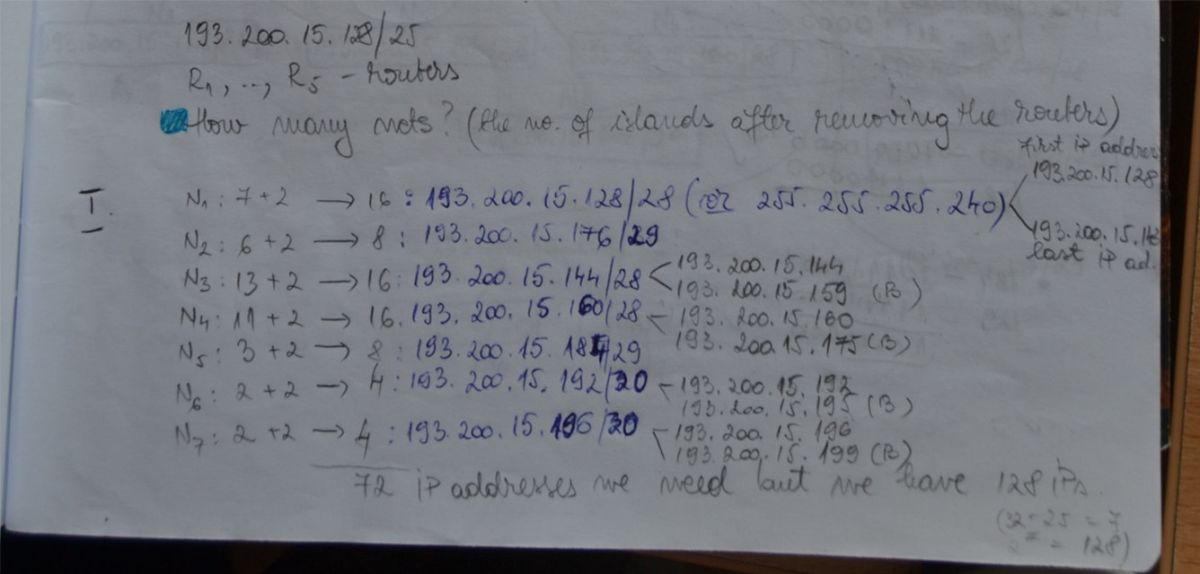 193.200.15.128/25
R1, .., R5 - routers
How many nets? (the no. of islands after removing the routers)
first ip addres
193.200.15.128
I. N1: 7+2 → 16: 193.200.15.128/28 (or 255.255.255.240)
193.200.15.143
last ip ad.
N2: 6+2 → 8: 193.200.15.176/29
N3: 13+2 → 16: 193.200.15.144/28 193.200.15.144
193.200.15.159 (B)
N4: 11+2 → 16. 193.200.15.160/28 - 193.200.15.160
193.200.15.175 (B)
N5: 3+2 → 8: 193.200.15.184/29
N6: 2+2 → 4: 193.200.15.192/30 193.200.15.192
193.200.15.195 (B)
N7: 2+2 → 4: 193.200.15.196/30 193.200.15.196
193.200.15.199 (B)
72 ip addresses we need but we have 128 iPs.
(32-25 = 7
= 128)